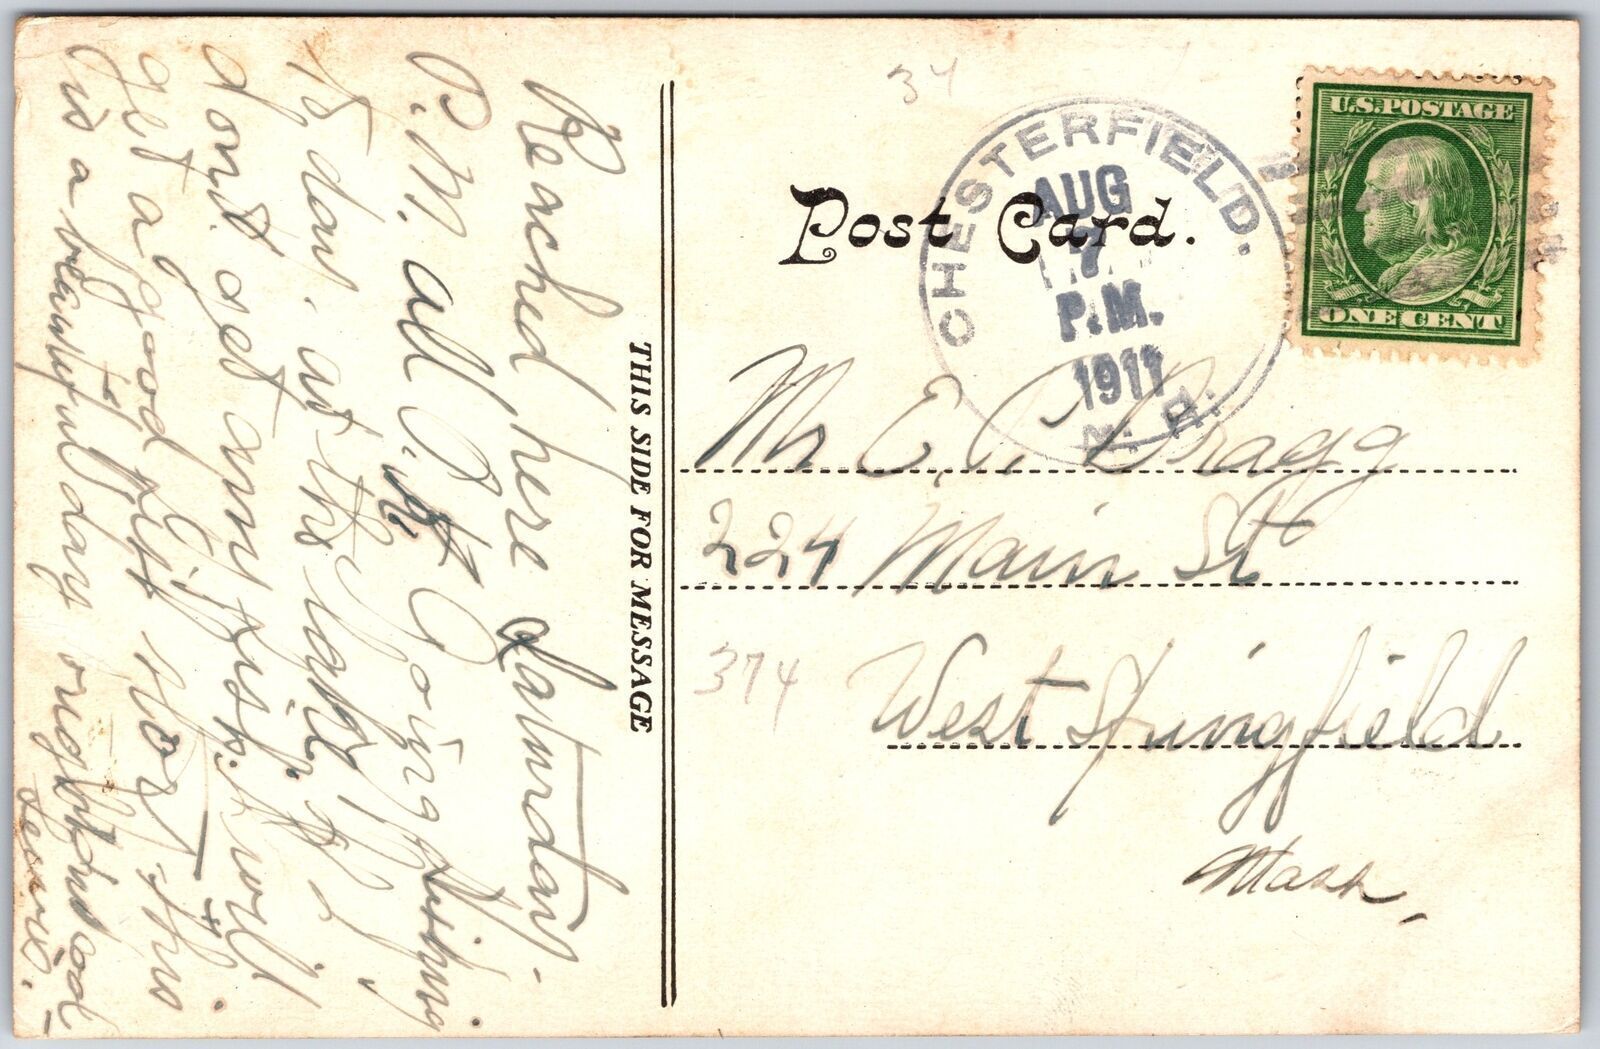 34
U.S. POSTAGE
ONE CENT
CHESTERFIELD.
AUG
7
P.M.
1911
N.H.
Post Card.
THIS SIDE FOR MESSAGE
Mr E. P. Bragg
224 Main St
374
West Springfield
Mass,
Reached here Saturday.
P.M. all O.K. Going fishing
to day. at the lake. If I
dont get any fish. I will
get a good piss this
is a beautiful day
Lewis.